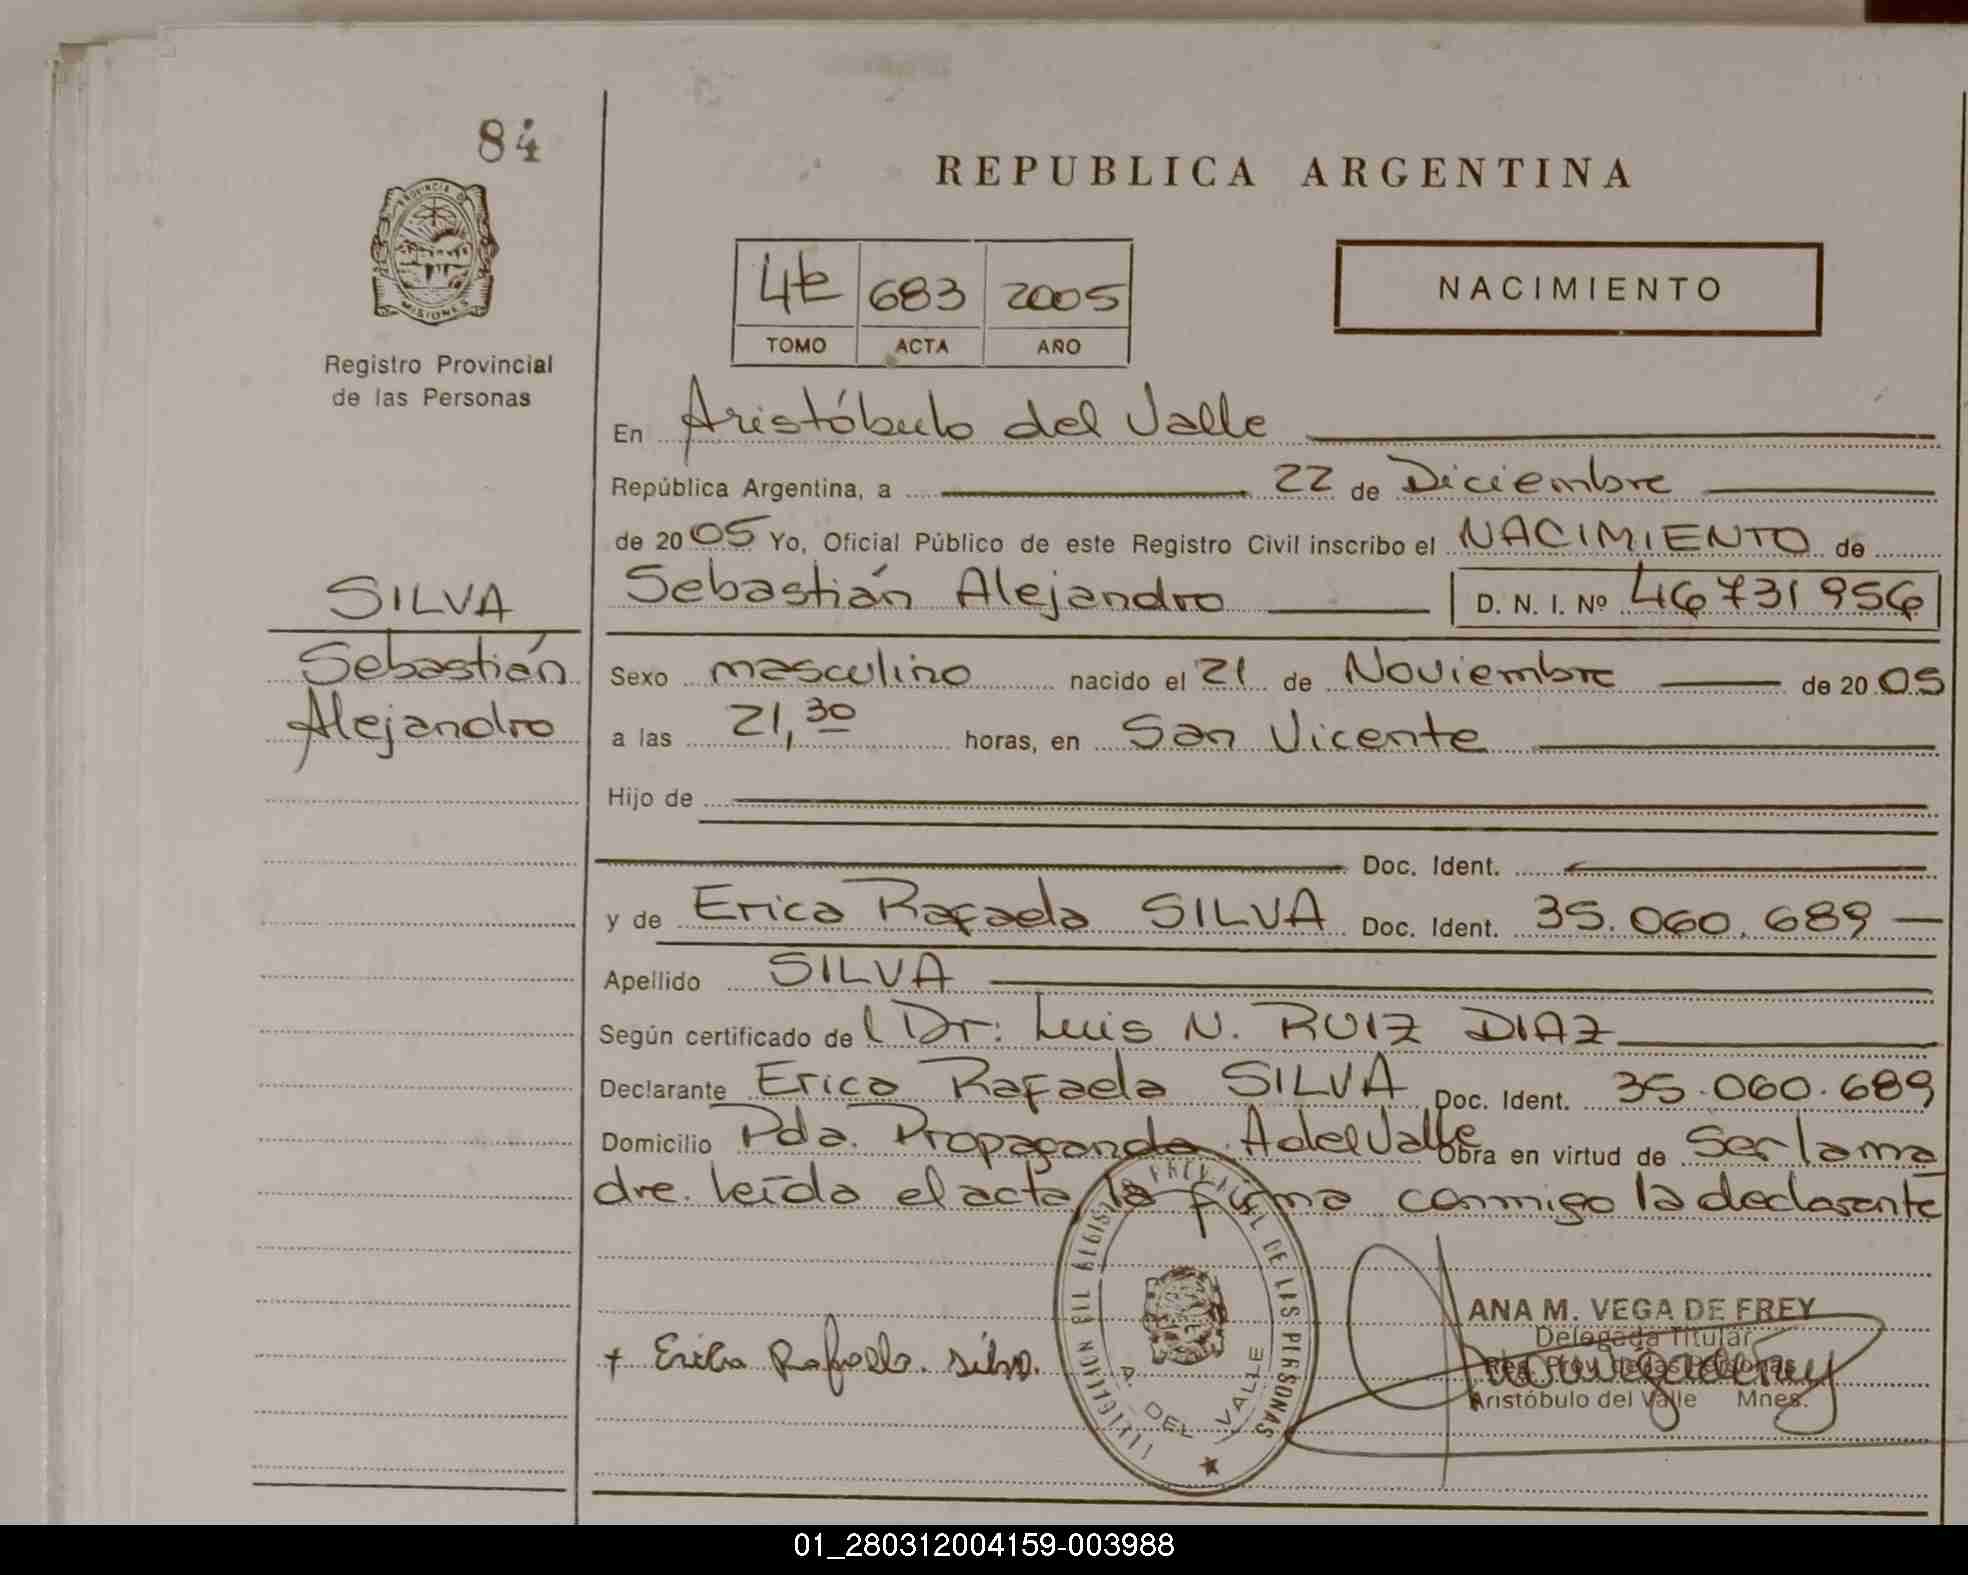 84
REPUBLICA ARGENTINA
PROVINCIA DE
MISIONES
Registro Provincial
de las Personas
683 2005
TOMO ACTA AÑO
NACIMIENTO
En Aristóbulo del Valle
República Argentina, a 22 de Diciembre
de 2005 Yo, Oficial Público de este Registro Civil inscribo el NACIMIENTO de
SILVA
Sebastián
Alejandro
Sebastián Alejandro D. N. I. Nº 46731956
Sexo masculino nacido el 21 de Noviembre de 2005
a las 21,30 horas, en San Vicente
Hijo de
Doc. Ident.
y de Erica Rafaela SILVA Doc. Ident. 35.060.689
Apellido SILVA
Según certificado del Dr: Luis N. RUIZ DIAZ
Declarante Erica Rafaela SILVA Doc. Ident. 35.060.689
Domicilio Pda. Propaganda A del Valle Obra en virtud de ser la ma
dre. leída el acta, la firma conmigo la declarante
DE LAS PERSONAS
A. DEL VALLE
+ Erica Rafaela Silva.
ANA M. VEGA DE FREY
Delegada Titular
Reg. Prov. de las Personas
Aristóbulo del Valle Mnes.
01_280312004159-003988